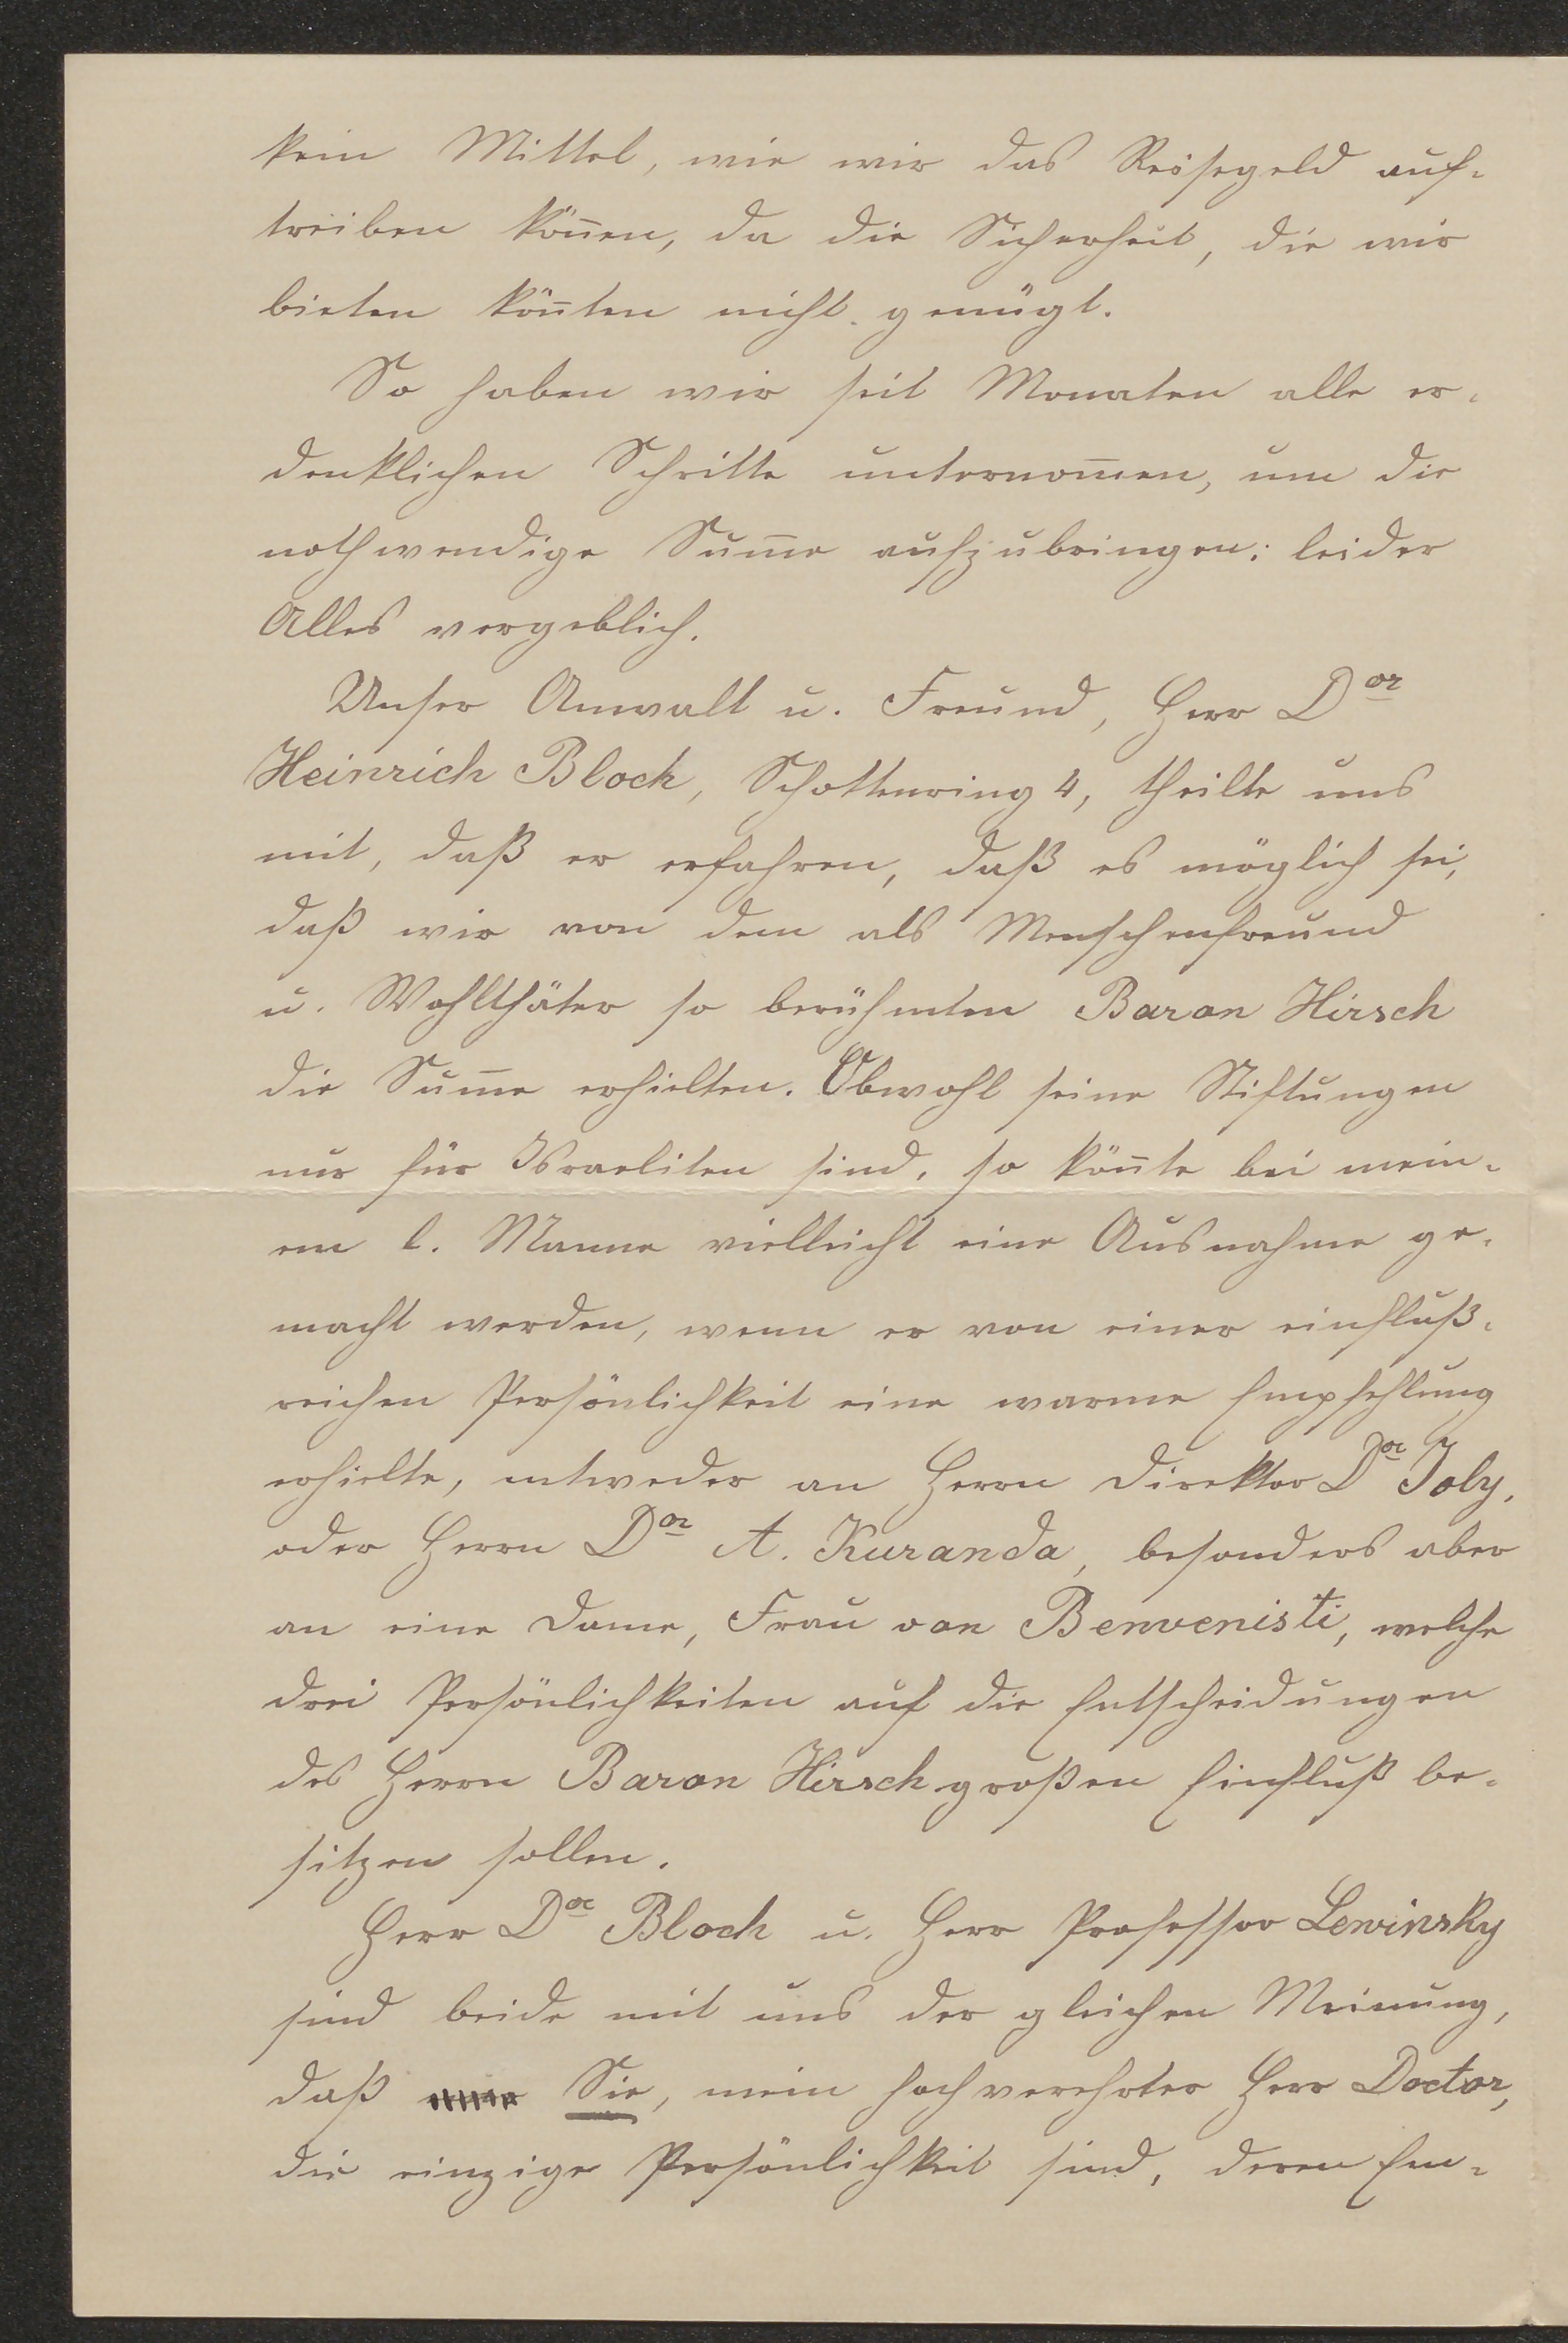 kein Mittel, wie wir das Reisegeld auf-
treiben kön̄en, da die Sicherheit, die wir
bieten kön̄ten nicht genügt.
So haben wir seit Monaten alle er-
denklichen Schritte unternom̄en, um die
nothwendige Sum̄e aufzubringen: leider
Alles vergeblich.
Unser Anwalt u. Freund, Herr Dor
Heinrich Bloch, Schottenring 4, theilte uns
mit, daß er erfahren, daß es möglich sei,
daß wir von dem als Menschenfreund
u. Wohlthäter so berühmten Baron Hirsch
die Sum̄e erhielten. Obwohl seine Stiftungen
nur für Israeliten sind, so kön̄te bei mein-
em l. Manne vielleicht eine Ausnahme ge-
macht werden, wenn er von einer einfluß-
reichen Persönlichkeit eine warme Empfehlung
erhielte, entweder an Herrn Direktor Dor Joly,
oder Herrn Dor A. Kuranda, besonders aber
an eine Dame, Frau von Benvenisti, welche
drei Persönlichkeiten auf die Entscheidungen
des Herrn Baron Hirsch großen Einfluß be-
sitzen sollen.
Herr Dor Bloch u. Herr Professor Lewinsky
sind beide mit uns der gleichen Meinung,
daß Sie, mein hochverehrter Herr Doctor,
die einzige Persönlichkeit sind, deren Em-